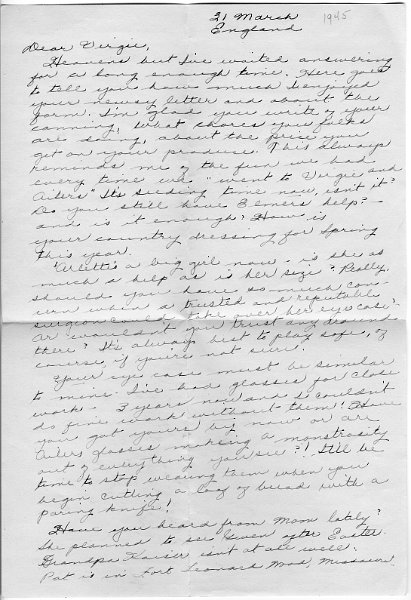 21 March 1945
England
Dear Virgie,
Heavens but I've waited answering
for a long enough time. Here goes
to tell you how much I enjoyed
your newsy letter and about the
farm. I'm glad you write of your
canning, what chores you folks
are doing, about the price you
get on your produce. This always
reminds me of the fun we had
every time we "went to Virgie and
Ailers" It's seeding time now, isn't it?
Do you still have Elmers help? -
and is it enough? How is
your country dressing for Spring
this year.
Arlett's a big girl now - is she as
much a help as is her size? Really,
should you have so much con-
cern when a trusted and reputable
surgeon could take over her eye case?
Or wouldn't you trust any
there? It's always best to play safe, of
course, if you're not sure.
Your eye case must be similar
to mine. I've had glasses for close
work - 3 years now and I couldn't
do fine work without them! Have
you got yours by now or are
Ailers glasses making a monstrosity
out of everything you see?! It'll be
time to stop wearing them when you
begin cutting a loaf of bread with a
paring knife!
Have you heard from Mom lately?
She planned to see Gwen after Easter.
Grandpa Kaiser isnt at all well.
Pat is in Fort Leonard Wood Missouri.